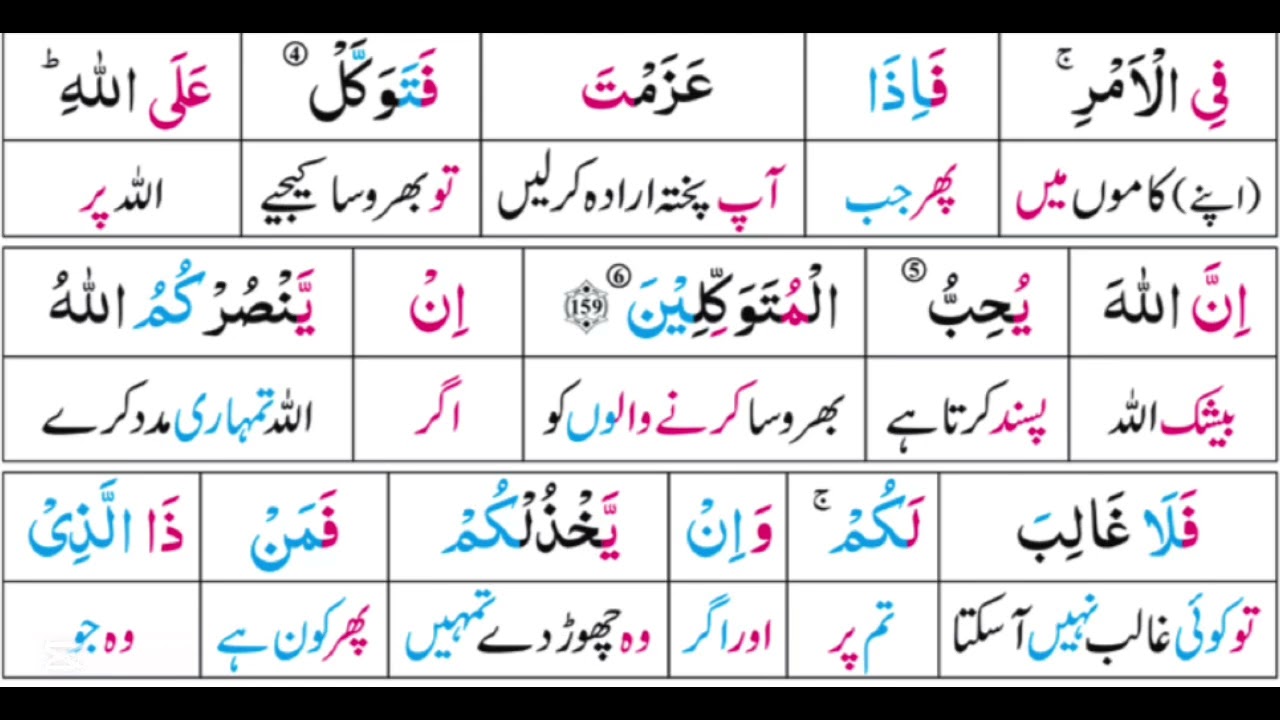 فِي الْاَمْرِ ۚ فَاِذَا عَزَمْتَ فَتَوَكَّلْ ④ عَلَى اللّٰهِ ؕ
(اپنے) کاموں میں پھر جب آپ پختہ ارادہ کرلیں تو بھروسا کیجیے اللہ پر
اِنَّ اللّٰهَ يُحِبُّ ⑤ الْمُتَوَكِّلِيْنَ ⑥ 159 اِنْ يَّنْصُرْكُمُ اللّٰهُ
بیشک اللہ پسند کرتا ہے بھروسا کرنے والوں کو اگر اللہ تمہاری مدد کرے
فَلَا غَالِبَ لَكُمْ ۚ وَاِنْ يَّخْذُلْكُمْ فَمَنْ ذَا الَّذِيْ
تو کوئی غالب نہیں آ سکتا تم پر اور اگر وہ چھوڑ دے تمہیں پھر کون ہے وہ جو